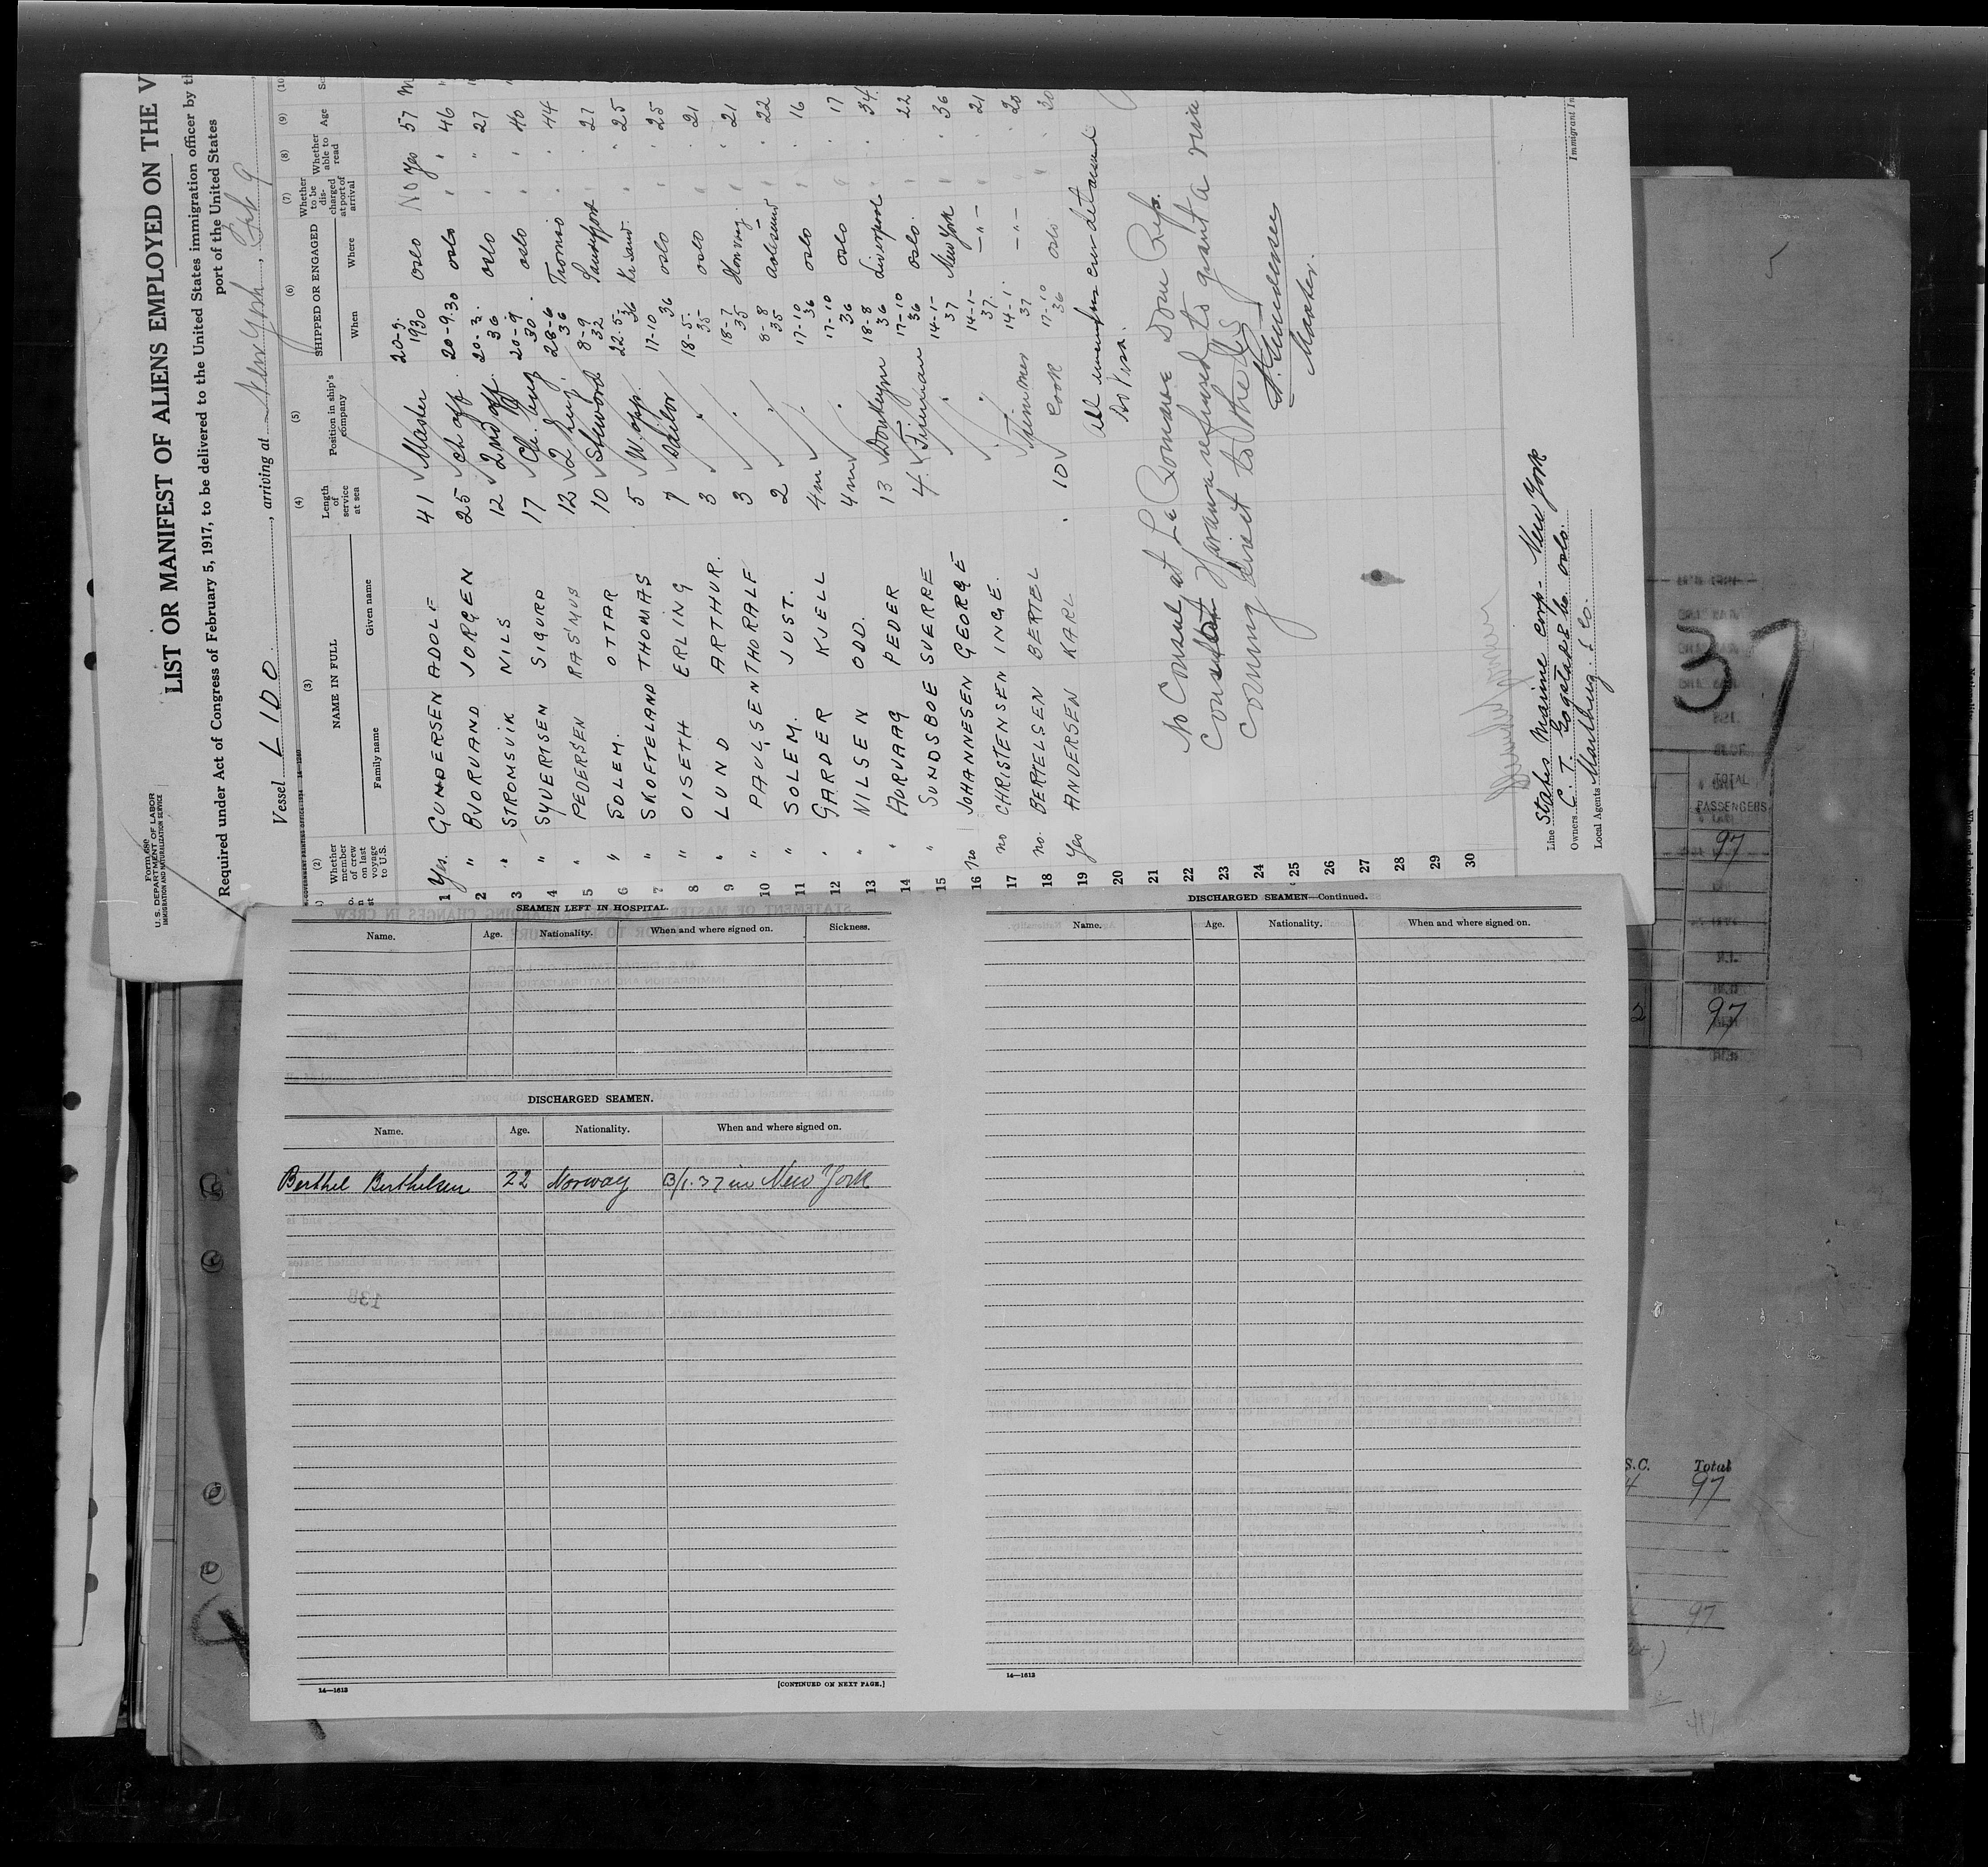 Form 689
U. S. DEPARTMENT OF LABOR
IMMIGRATION AND NATURALIZATION SERVICE
LIST OR MANIFEST OF ALIENS EMPLOYED ON THE V
Required under Act of Congress of February 5, 1917, to be delivered to the United States immigration officer by th
port of the United States
Vessel LIDO, arriving at New York, Feb 9
(2) (3) (4) (5) (6) (7) (8) (9) (10)
Whether member of crew on last voyage to U.S. NAME IN FULL Length of service at sea Position in ship's company SHIPPED OR ENGAGED Whether to be discharged at port of arrival Whether able to read Age
Family name Given name When Where
1 Yes. GUNDERSEN ADOLF 41 Master 20-9. 1930 Oslo No Yes 57 M
2 " BJORVAND JORGEN 25 Ch. off. 20-9.30 Oslo " " 46 "
3 " STROMSVIK NILS 12 2nd off. 20-3. 36 Oslo " " 27 "
4 " SYVERTSEN SIGURD 17 Ch. eng. 20-9 30. Oslo " " 40 "
5 " PEDERSEN RASMUS 12 2 Eng. 28-6 36 Tromsö " " 44
6 " SOLEM. OTTAR 10 Steward 8-9 32 Sandefjord " " 27
7 " SKOFTELAND THOMAS 5 22.5- 36 Kr.Sand. " " 25
8 " OISETH ERLING 7 Sailor 17-10 36 Oslo " " 25
9 " LUND ARTHUR. 3 " 18-5. 35- Oslo " " 21
10 " PAULSEN THORALF 3 " 18-7 35 " " 21
11 " SOLEM. JUST. 2 " 8-8 35 Aalesund " " 22
12 " GARDER KJELL 4m " 17-10 36 Oslo " " 16
13 " NILSEN ODD. 4m " 17-10 36 Oslo " " 17
14 " AURVAAG PEDER 13 Donkeyman 18-8 36 Liverpool " " 34
15 " SUNDSBOE SVERRE 4 Fireman 17-10 36 Oslo. " " 22
16 no JOHANNESEN GEORGE " 14-1- 37 New York " " 36
17 no CHRISTENSEN INGE. " 14-1- 37. -"- " " 21
18 no. BERTELSEN BERTEL Trimmer 14-1. 37 -"- " " 20
19 Yes ANDERSEN KARL 10 Cook 17-10 36 Oslo " " 20
20
21
22
23
24
25
26
27
28
29
30
All members crew
No Visa.
No Consul at La Romana Dom Rep.
Havana refused to grant a visa
coming direct to the U.S.
A. Gundersen
Master.
Line States Marine Corp- New York
Owners C. T. Gogstad & Co Oslo.
Local Agents
Immigrant In
37
TOTAL
PASSENGERS
97
2 97
S.C. Total
4 97
97
SEAMEN LEFT IN HOSPITAL.
Name. Age. Nationality. When and where signed on. Sickness.
DISCHARGED SEAMEN.
Name. Age. Nationality. When and where signed on.
Berthel Berthelsen 22 Norway 13/1.37 in New York
14—1613 [CONTINUED ON NEXT PAGE.]
DISCHARGED SEAMEN—Continued.
Name. Age. Nationality. When and where signed on.
14—1613